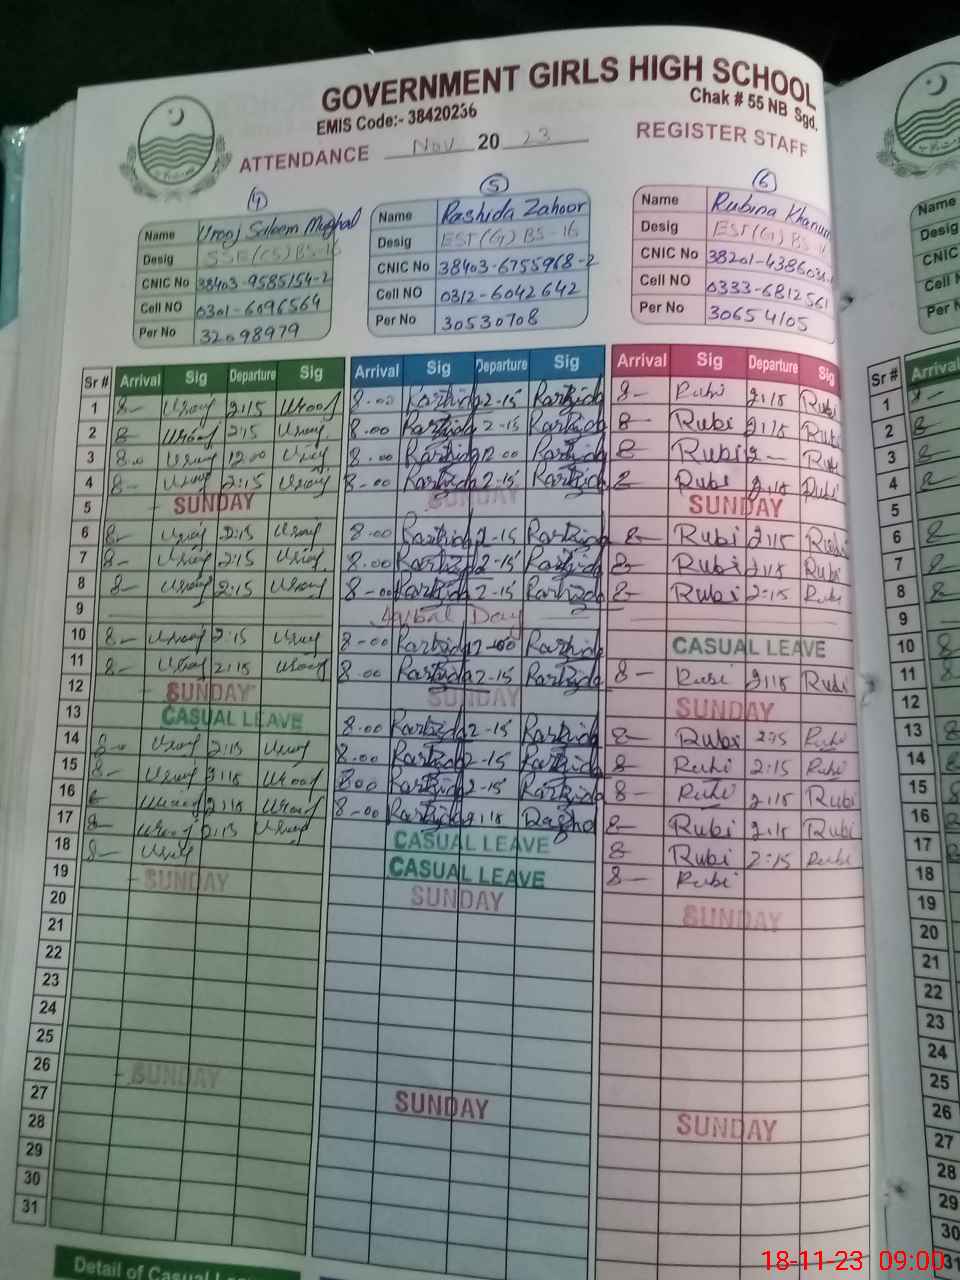 GOVERNMENT GIRLS HIGH SCHOOL
EMIS Code:- 38420236
Chak # 55 NB Sgd.
ATTENDANCE Nov 20 23 REGISTER STAFF
4 5 6
Name Urooj Saleem Mughal Name Rashida Zahoor Name Rubina Khanum Name
Desig SSE(CS) BS-16 Desig EST(G) BS-16 Desig EST(G) BS-16 Desig
CNIC No 38403-9585154-2 CNIC No 38403-6755968-2 CNIC No 38201-438603 CNIC
Cell NO 0301-6096564 Cell NO 0312-6042642 Cell NO 0333-6812561 Cell
Per No 32098979 Per No 30530708 Per No 30654105 Per
Sr # Arrival Sig Departure Sig Arrival Sig Departure Sig Arrival Sig Departure Sig Sr # Arrival
1 8- Urooj 2:15 Urooj 8.00 Rashida 2-15 Rashida 8- Rubi 2:15 Rubi 1
2 8- Urooj 2:15 Urooj 8.00 Rashida 2-15 Rashida 8- Rubi 2:15 Rubi 2
3 8.0 Urooj 12.00 Urooj 8.00 Rashida 12.00 Rashida 8- Rubi 12- Rubi 3
4 8- Urooj 2:15 Urooj 8-00 Rashida 2-15 Rashida 8- Rubi 2:15 Rubi 4
5 SUNDAY SUNDAY SUNDAY 5
6 8- Urooj 2:15 Urooj 8.00 Rashida 2-15 Rashida 8- Rubi 2:15 Rubi 6
7 8- Urooj 2:15 Urooj 8.00 Rashida 2-15 Rashida 8- Rubi 2:15 Rubi 7
8 8- Urooj 2:15 Urooj 8-00 Rashida 2-15 Rashida 8- Rubi 2:15 Rubi 8
9 Iqbal Day 9
10 8- Urooj 2:15 Urooj 8-00 Rashida Rashida CASUAL LEAVE 10
11 8- Urooj 2:15 Urooj 8.00 Rashida 2-15 Rashida 8- Rubi 2:15 Rubi 11
12 SUNDAY SUNDAY SUNDAY 12
13 CASUAL LEAVE 8.00 Rashida 2-15 Rashida 8- Rubi 2:15 Rubi 13
14 8- Urooj 2:15 Urooj 8.00 Rashida 2-15 Rashida 8- Rubi 2:15 Rubi 14
15 8- Urooj 2:15 Urooj 800 Rashida 2-15 Rashida 8- Rubi 2:15 Rubi 15
16 8- Urooj 2:15 Urooj 8-00 Rashida 2:15 8- Rubi 2:15 Rubi 16
17 8- Urooj 2:15 Urooj CASUAL LEAVE 8- Rubi 2:15 Rubi 17
18 8- Urooj CASUAL LEAVE 8- Rubi 18
19 SUNDAY SUNDAY SUNDAY 19
20 20
21 21
22 22
23 23
24 24
25 25
26 SUNDAY SUNDAY SUNDAY 26
27 27
28 28
29 29
30 30
31 31
Detail of Casual
18-11-23 09:00